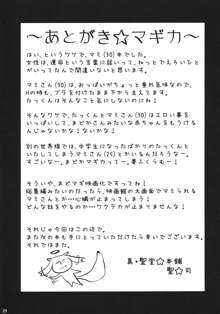 ～あとがき☆マギカ～
はい、というワケで、マミ(30)本でした。
女性は、運命という言葉に弱いって、ねっとでえろいひと
がいってたんで間違いないと思います。
マミさん(30)は、おっぱいがちょっと垂れ気味なので、
Hの時も、ブラを付けたままで下から支えてます。
たっくんはそんなこと気にしないのにね！
そういうワケで、たっくんとマミさん(30)はエロい事を
いっぱいして、
んじゃないかな！ないかな！
別の世界線では、中学生になったばかりのたっくんと
いたしてるマミさん(25)とかもいるんだろうなー。
すごいなー、まどかマギカって…夢ふくらむー！
そういや、まどマギ映画化ですってね！
総集編みたいなのだったら、映画館の大画面でマミられる
マミさんとか…心構が止まってしまいますよ！
どんな話をやるのか…ワクテカが止まりませんな！
それじゃ今回はこの辺で。
また次の本も手にとっていただけたら幸いでございます。
それではまた。
真・聖堂☆本舗
聖☆司